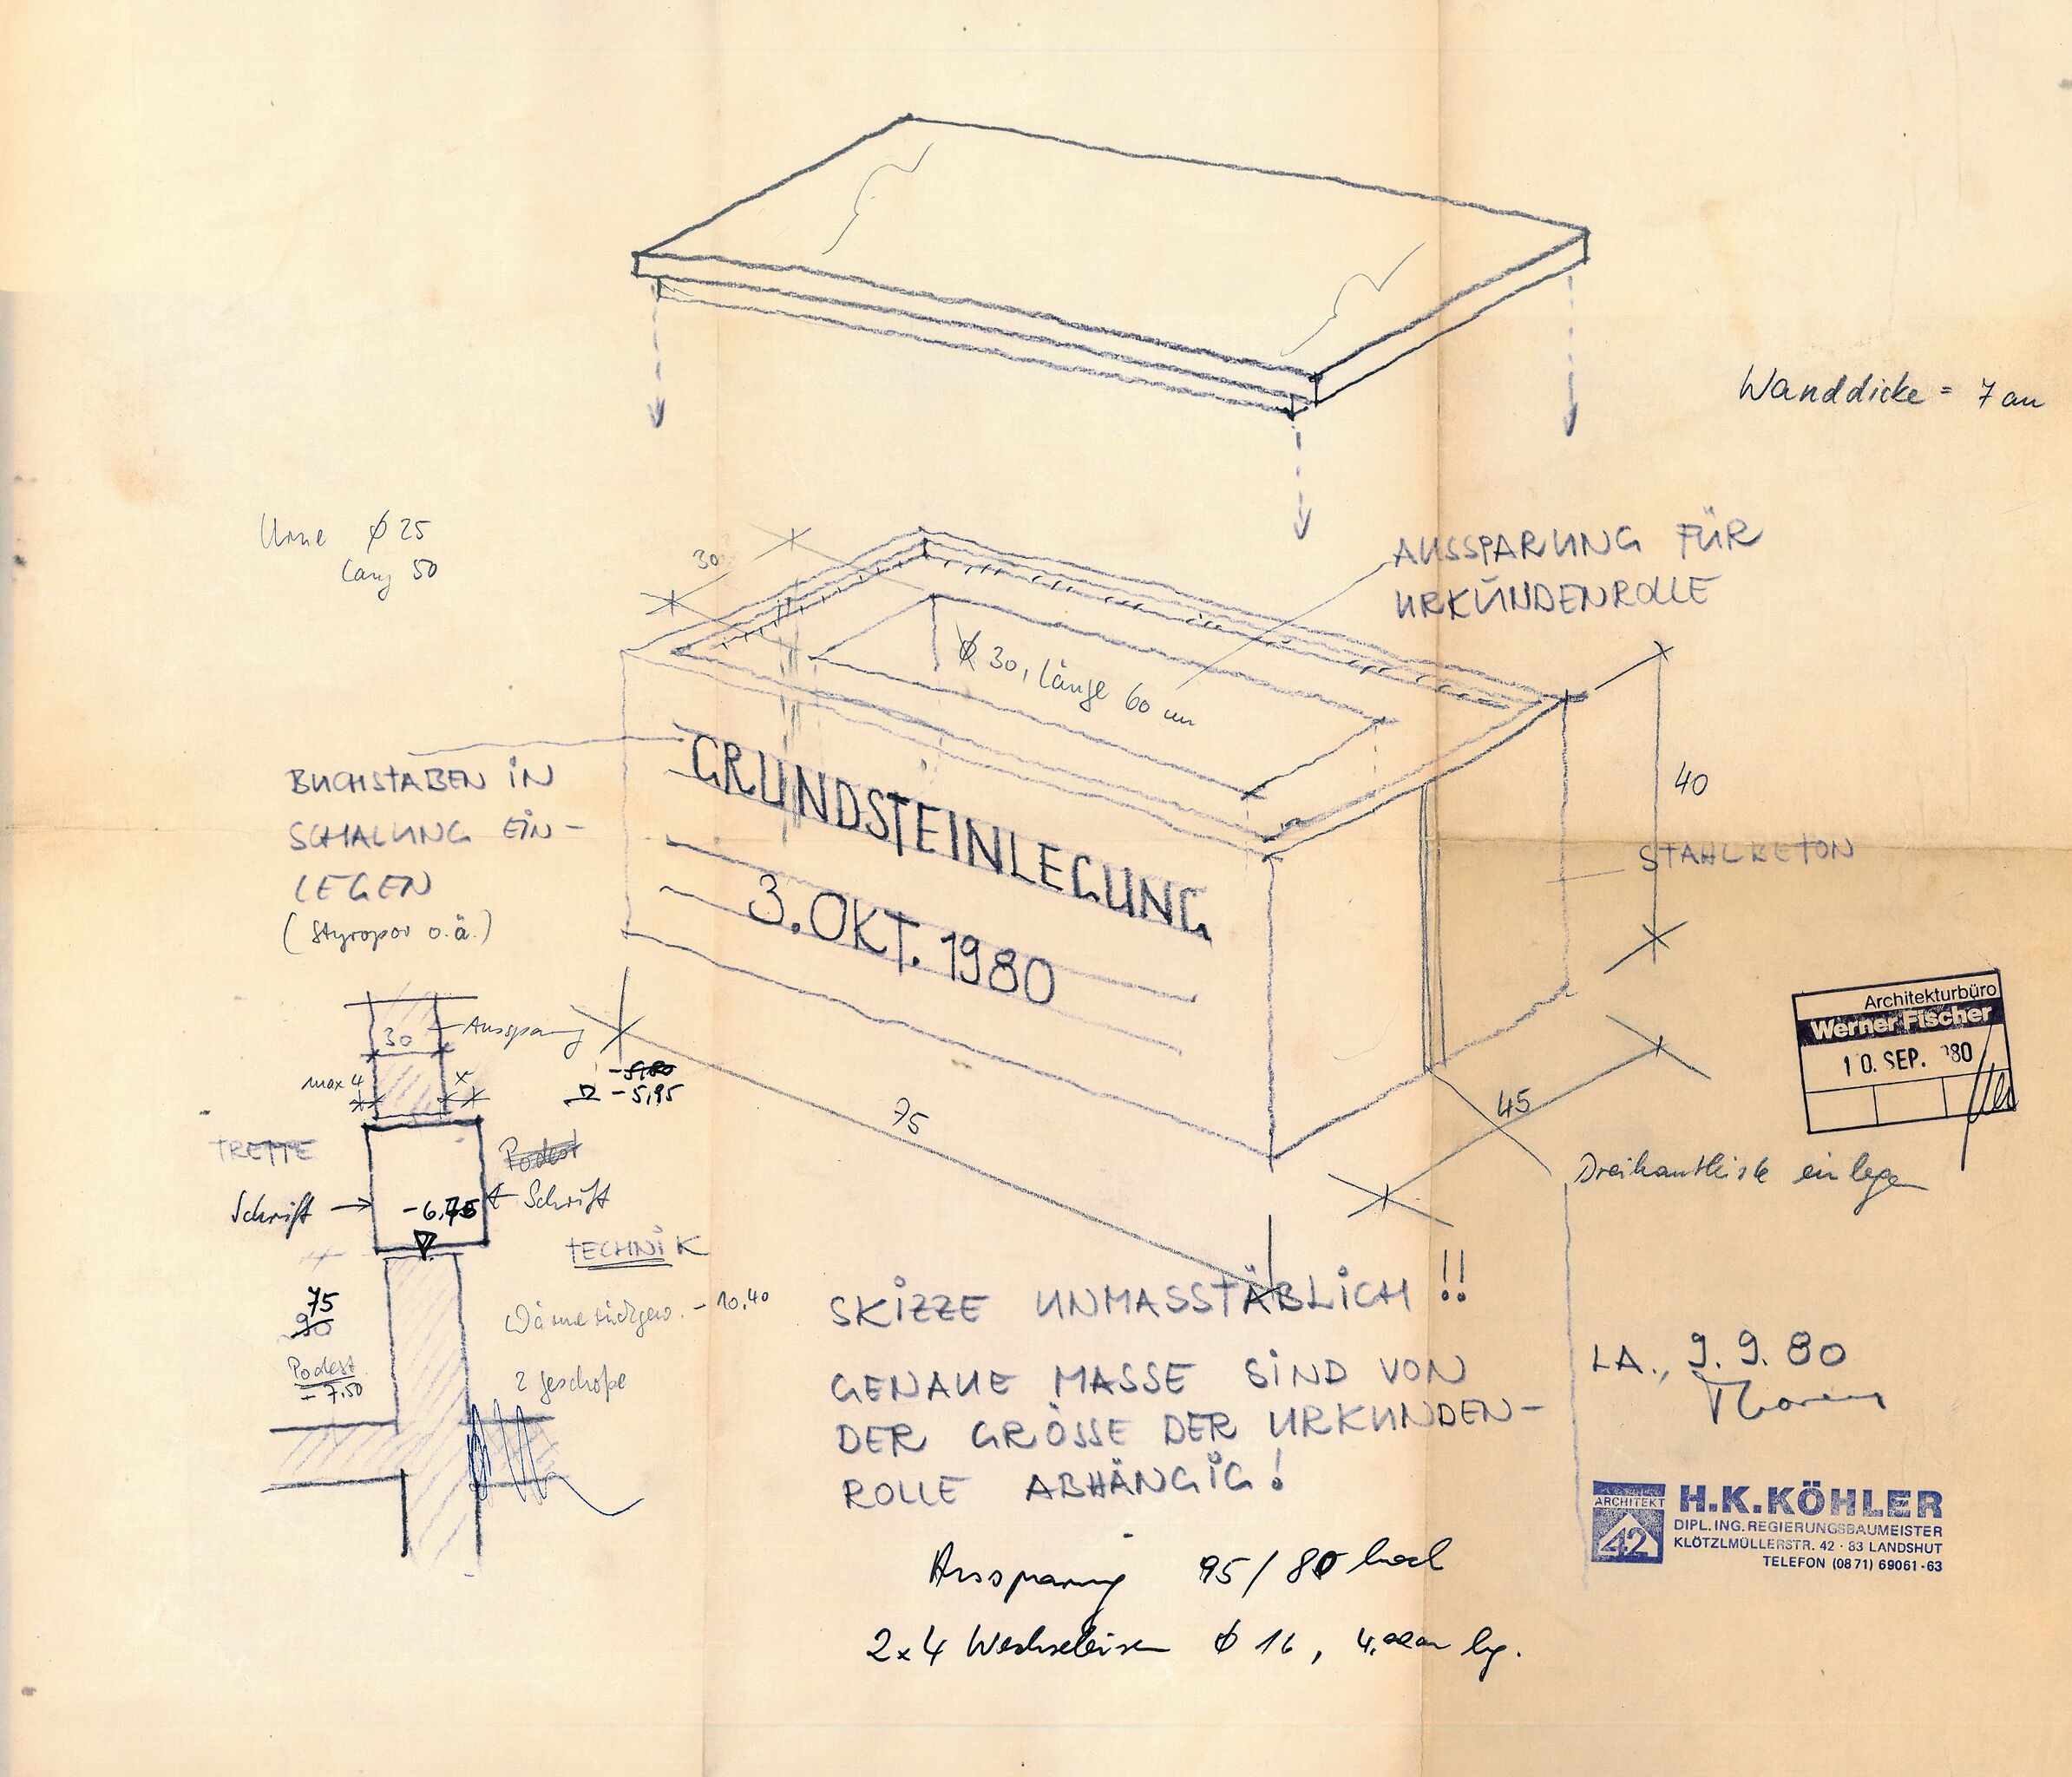 Wanddicke = 7 cm
Urne ϕ 25
lang 50
AUSSPARUNG FÜR
URKUNDENROLLE
30
ϕ 30, Länge 60 cm
BUCHSTABEN IN
SCHALUNG EIN-
LEGEN
(Styropor o.ä.)
GRUNDSTEINLEGUNG
3. OKT. 1980
40
STAHLBETON
75
45
Dreikantleiste einlegen
Architekturbüro
Werner Fischer
10. SEP. '80
30
Aussparung
max 4
x
-5,95
TREPPE
Podest
Schrift
Schrift
-6,75
TECHNIK
75
90
Wärmerückgew. - 10,40
Podest
- 7,50
2 Geschoße
SKIZZE UNMASSTÄBLICH !!
GENAUE MASSE SIND VON
DER GRÖSSE DER URKUNDEN-
ROLLE ABHÄNGIG!
LA., 9. 9. 80
ARCHITEKT
42
H.K.KÖHLER
DIPL.ING.REGIERUNGSBAUMEISTER
KLÖTZLMÜLLERSTR. 42 · 83 LANDSHUT
TELEFON (0871) 69061-63
Aussparung 95/80 hoch
2x4 Wechseleisen ϕ 16, lg.